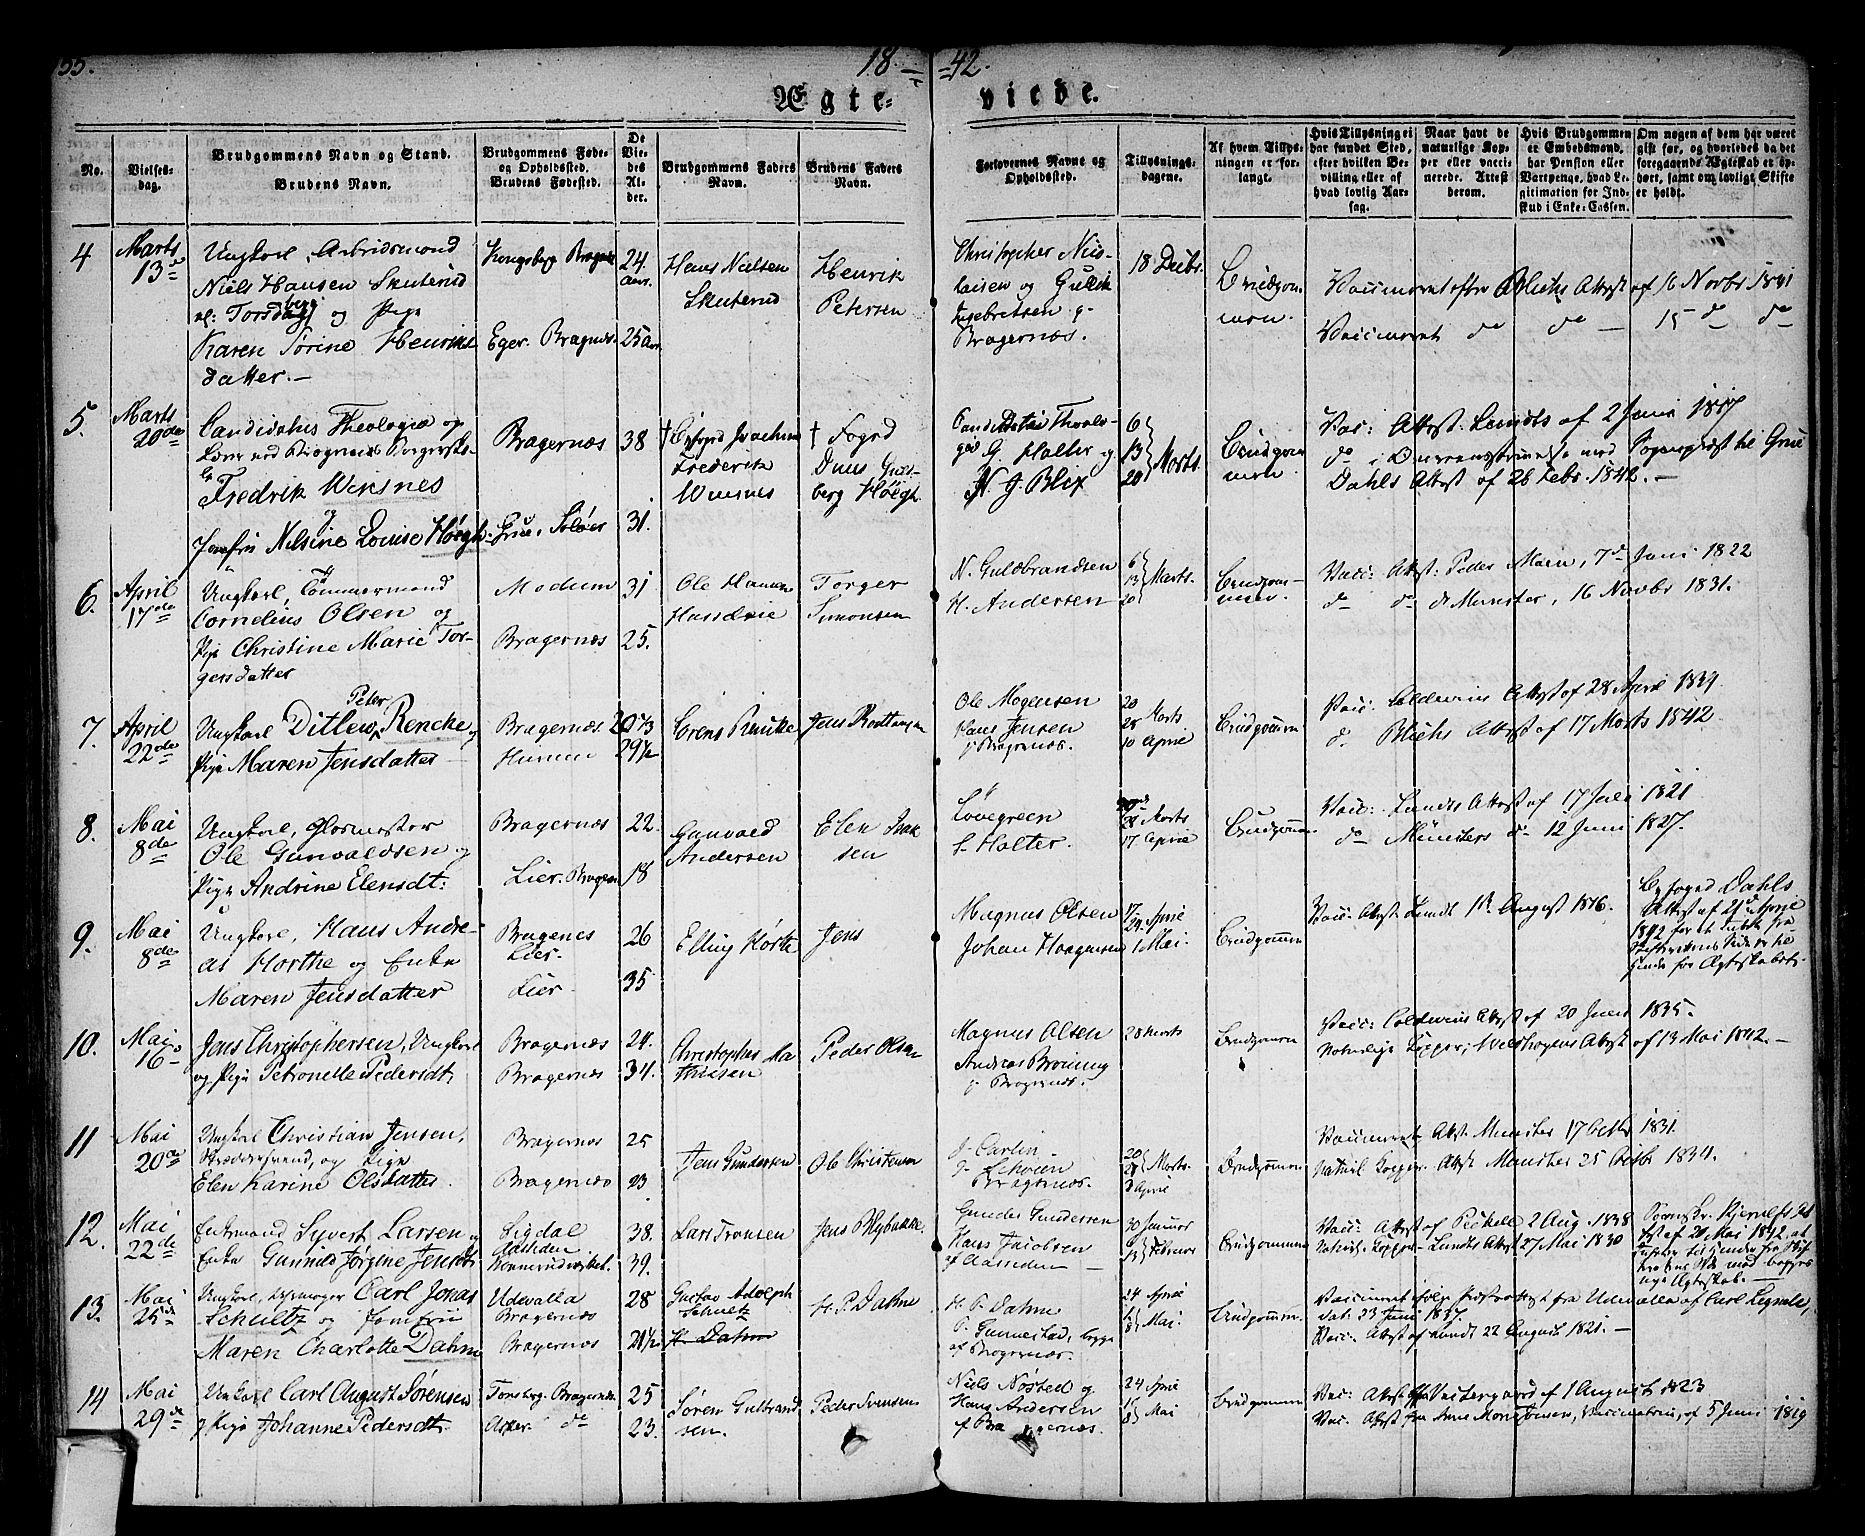 155.
18 — 42.
Ægte= viede.
No.
Vielses-
dag.
Brudgommens Navn og Stand.
Brudens Navn.
Brudgommens Føde-
og Opholdssted.
Brudens Fødested.
De
Vie-
des
Al-
der.
Brudgommens Faders
Navn.
Brudens Faders
Navn.
Forlovernes Navne og
Opholdssted.
Tillysnings-
dagene.
Af hvem Tillys-
ningen er for-
langt.
Hvis Tillysning ei
har fundet Sted,
efter hvilken Be-
villing eller af
hvad lovlig Aar-
sag.
Naar havt de
naturlige Kop-
per eller vacci-
nerede. Attest
derom.
Hvis Brudgommen
er Embedsmand,
har Pension eller
Vartpenge, hvad Le-
gitimation for Ind-
skud i Enke-Cassen.
Om nogen af dem har været
gift før, og hvorledes da det
foregaaende Ægteskab er op-
hørt, samt om lovligt Skifte
er holdt.
4
Marts
13de
Ungkarl, Arbeidsmand
Niels Hansen Skuterud
el: Torsdberg og Pige
Karen Sørine Henriks
datter. —
Kongsberg Bragnæs
Eger. Bragnæs.
24 aar.
25 aar
Hans Nielsen
Skuterud
Henrik
Petersen
Christopher Niis-
laisen og Gulik
Ingebretsen
Bragernæs.
18 Decbr.
Brudgom-
men.
Vaccineret efter Blichs Attest af 16 Novbr 1841
Vaccineret do do — 15 do do
5.
Marts
20de
Candidatus Theologiæ og
Lærer ved Bragernæs Borgersko-
le
Fredrik Wiesnes
og
Jomfru Nilsine Louise Høegh
Bragernæs
Grue, Soløer
38
31.
† Byfoged Joachim
Frederik
Wiesnes
† Foged
Duus Guld-
berg Høegh
G. Halter og
N. J. Blix
6
13
20
Marts.
Brudgom
men.
Vac: Attest. Lundts af 2 Juni 1817
do i Overensstemmelse med Sogneprest til Grue
Dahls Attest af 26 Febr. 1842. —
6.
April
17de
Ungkarl, Tømmermand
Cornelius Olsen og
Pige Christine Marie Tor-
gersdatter
Modum
Bragernæs
31
25.
Ole Hansen
Torger
Simonsen
N. Guldbrandsen
H. Andersen
6
13
20
Marts.
Brudgom-
men.
Vacc: Attest: Peder Moen, 7de Juni 1822
do do do Munster, 16 Novbr 1831.
7.
April
22de
Ungkarl Ditlew Peter Rencke og
Pige Maren Jensdatter
Bragernæs.
Hurum
29 1/2
Jens
Ole Mogensen
Hans Jensen
Bragernæs.
20
28 Marts
10 April
Brudgommen
Vacc: Coldevins Attest af 28 April 1839
do Blichs Attest af 17 Marts 1842.
8.
Mai
8de
Ungkarl, Glasmester
Ole Gunvaldsen og
Pige Andrine Elensdt:
Bragernæs
Lier. Bragernæs
22.
18
Gunvald
Andersen
Elen Isak
sen
Løvegreen
Halter.
28 Marts
17 April
Brudgommen
Vacc: Lundts Attest af 17 Juli 1821
do Münsters do 12 Juni 1827.
9.
Mai
8de
Ungkarl, Hans Andre-
as Horthe og Enke
Maren Jensdatter
Bragenes
Lier.
Lier
26
35
Elling Horte
Jens
Magnus Olsen
Johan Haagensen
17
24 April
1 Mai.
Brudgommen
Vacc: Attest Lundt 1ste August 1816.
Byfoged Dahls
Attest af 21de April
1842
10.
Mai
16
Jens Christophersen, Ungkarl
og Pige Petronelle Pedersdt.
Bragernæs
Bragernæs
24.
34.
Christopher Ma
thisen
Peder Olsen
Magnus Olsen
Andreas Bruning
Bragernæs.
28 Marts
Brudgommen
Vacc: Coldevins Attest af 20 Juni 1835.
Naturlige Kopper, Welhavens Attest af 13 Mai 1842. —
11
Mai
20de
Ungkarl Christian Jensen,
og Pige
Elen Karine Olsdatter.
Bragernæs
Bragernæs
25
23
Jens Gundersen
Ole Christensen
J. Carlin
Schøien
Bragernæs.
20
28 Marts.
3 April
Brudgommen
Vaccineret Attest. Munster 17 Octbr 1831.
Naturl. Kopper. Attest Munster 25 Octbr 1834.
12.
Mai
22de
Enkemand Syvert Larsen og
Enke Gunnild Jørgine Jensdt.
Sigdal
38.
39.
Lars Tronsen
Gunder Gundersen
Hans Jacobsen
30 Januar
6
13 Februar
Brudgommen
Vacc: Attest af 2 Aug. 1838
Naturl. Kopper Lundts Attest 27 Mai 1830
13.
Mai
25de
Ungkarl, Carl Jonas
Schultz og Jomfru
Maren Charlotte Dahm
Udevalla
Bragernæs
Bragernæs
28
21 1/2
Gustav Adolph
Schultz
H. Dahm
H. P. Dahm
H. P. Dahm
P. Gunnestad, begge
af Bragernæs.
24 April
1
8 Mai.
Brudgommen
Vaccineret ifølge Præsteattest fra Udevalla af Carl
dat: 23 Juni 1837.
Vacc: Attest af Lundt 22 August 1821. —
14
Mai
29de
Unkarl Carl August Sørensen
& Pige Johanne Pedersdt.
Tønsberg. Bragernæs.
Asker. do
25
23.
Søren Gulbrand
sen.
Peder Svensen
Niels Nosted og
Hans Andersen
af Bragernæs.
24 April
1
8 Mai
Brudgommen
Vacc: Attest af Vestergaard af 1 August 1823
Vac. Attest fra Anne Monsdsen, Vaccinatrice, af 5 Juni 1819